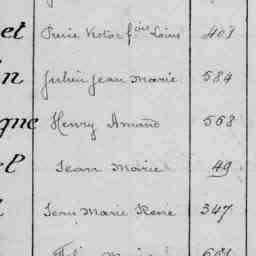 et Pierre Victor fois Louis 403
in Julien Jean Marie 584
gne Henry Amand 568
el Jean Marie 49
Jean Marie René 347